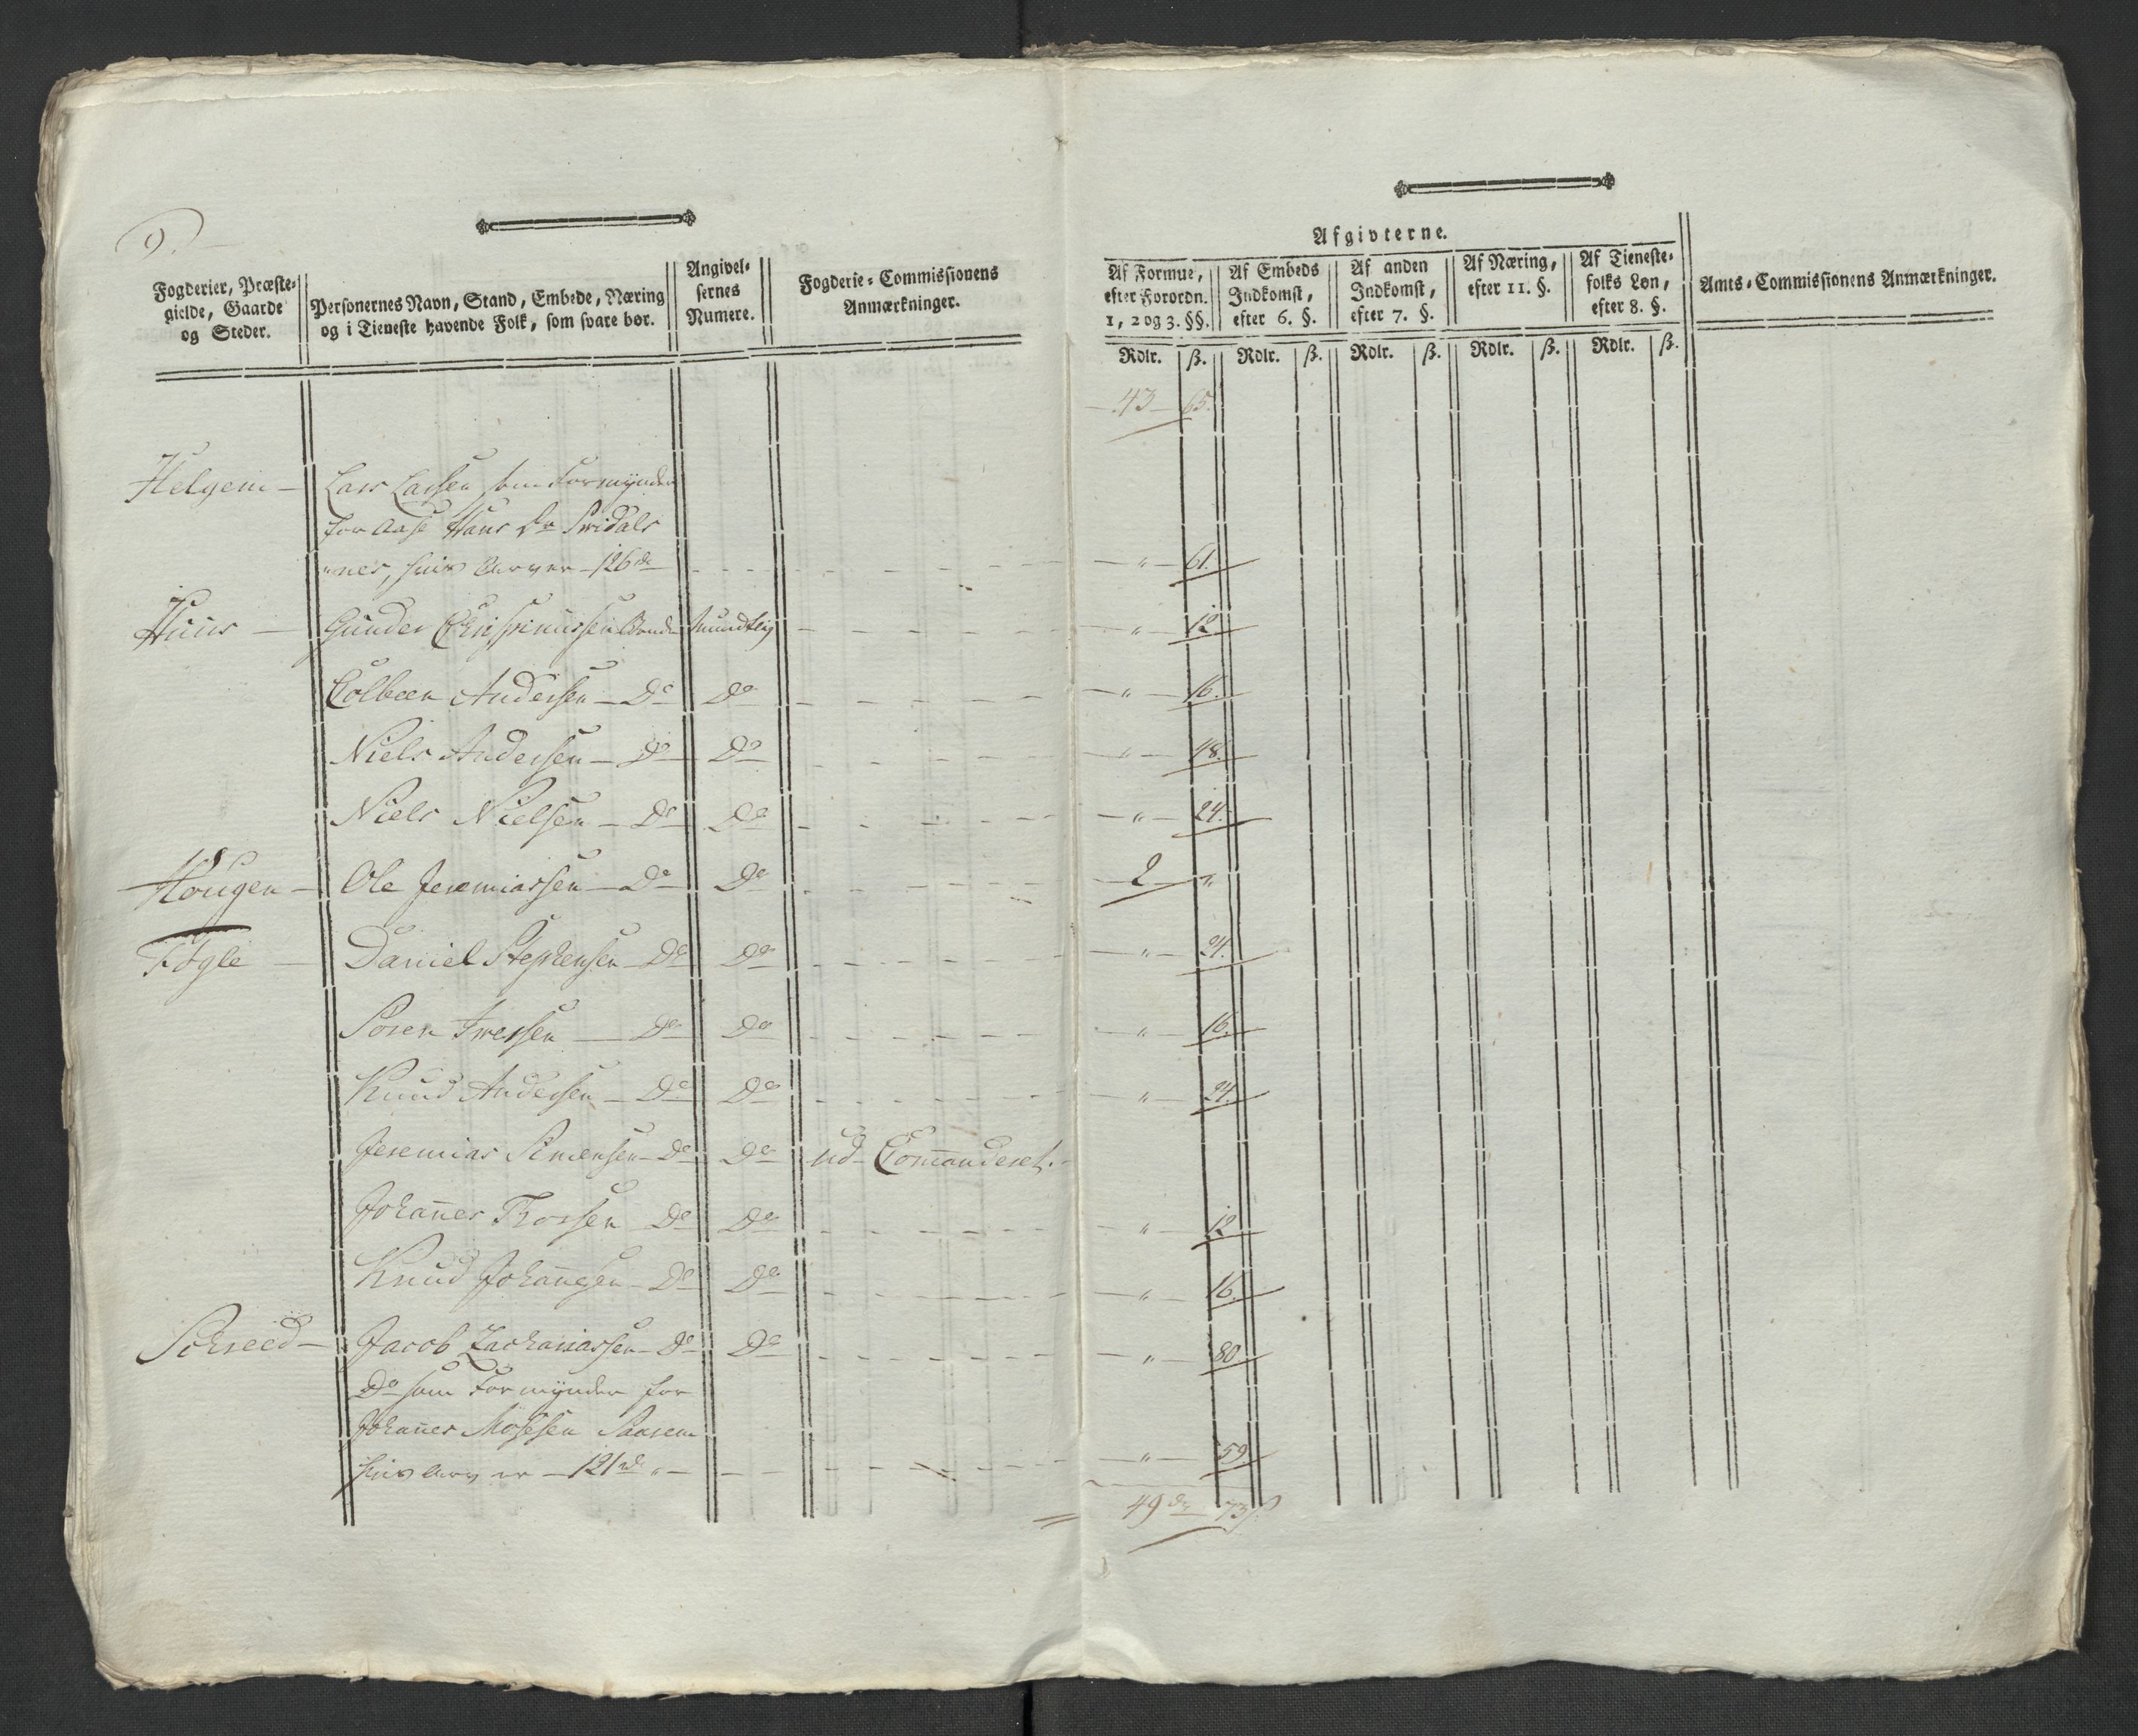 9.
Fogderier, Præste-
gielde, Gaarde
og Steder.
Personernes Navn, Stand, Embede, Næring
og i Tieneste havende Folk, som svare bør.
Angivel-
sernes
Numere.
Fogderie-Commissionens
Anmærkninger.
Afgivterne.
Af Formue,
efter Forordn.
1, 2 og 3. §§.
Af Embeds
Indkomst,
efter 6. §.
Af anden
Indkomst,
efter 7. §.
Af Næring,
efter 11. §.
Af Tieneste-
folks Løn,
efter 8. §.
Amts-Commissionens Anmærkninger.
Rdlr. ß. Rdlr. ß. Rdlr. ß. Rdlr. ß. Rdlr. ß.
43 65.
Helgem Lars Larsen som Formynder
for Aase Hans Dr
nes, hvis Arv er 126 rd " 61.
Huus Gunder Bonde Mundtlig " 12
Colbeen Andersen Do Do " 16.
Niels Andersen Do Do " 48.
Niels Nielsen Do Do " 24.
Hougen Ole Jeremiassen Do Do 2 "
Fogle Daniel Stephensen Do Do " 24.
Søren Iversen Do Do " 16.
Knud Andersen Do Do " 24.
Jeremias Simensen Do Do ud Com̄anderet.
Johan̄es Thorsen Do Do " 12
Knud Johan̄esen Do Do " 16.
Schreed Jacob Zachariassen Do Do " 80
Do som Formynder for
Johan̄es Mosesen
hvis Arv er 121 rd " " 59
49 rd 73 ß.